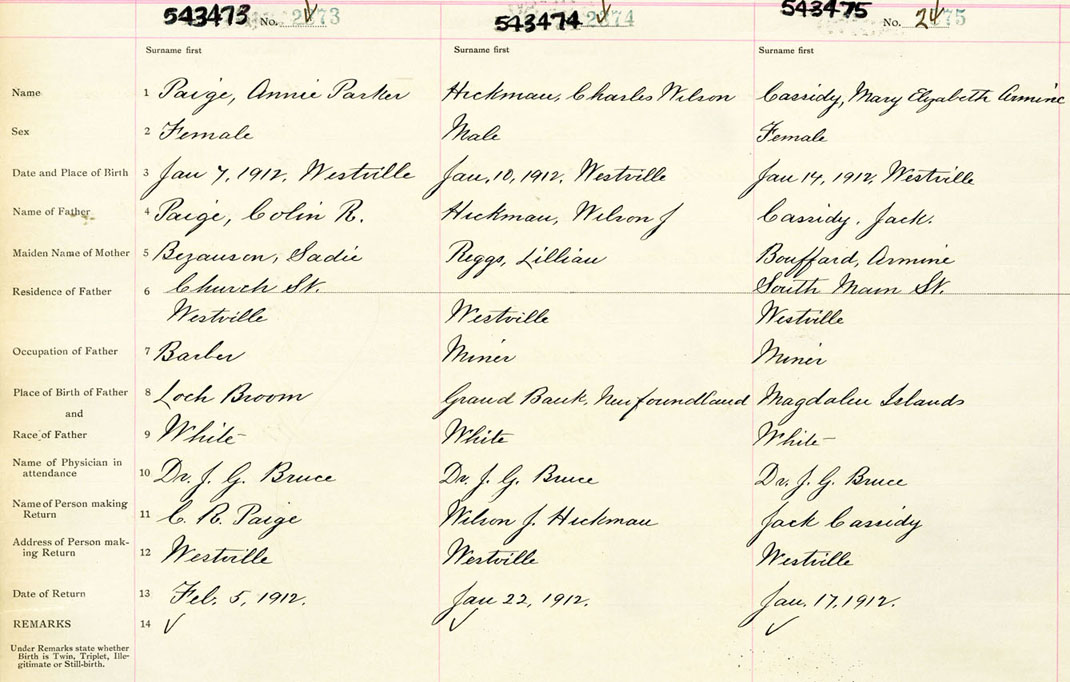 543473 No. 2373 543474 2374 543475 No. 2475
Surname first Surname first Surname first
Name 1 Paige, Annie Parker Hickman, Charles Wilson Cassidy, Mary Elyabeth Armine
Sex 2 Female Male Female
Date and Place of Birth 3 Jan 7, 1912, Westville Jan, 10, 1912, Westville Jan 14, 1912, Westville
Name of Father 4 Paige, Colin R. Hickman, Wilson J Cassidy, Jack.
Maiden Name of Mother 5 Bezanson, Sadie Reggs, Lillian Bouffard, Armine
Residence of Father 6 Church St. South Main St.
Westville Westville Westville
Occupation of Father 7 Barber Miner Miner
Place of Birth of Father 8 Loch Broom Grand Bank, Newfoundland Magdalen Islands
and
Race of Father 9 White White White
Name of Physician in
attendance 10 Dr. J. G. Bruce Dr. J. G. Bruce Dr. J. G. Bruce
Name of Person making
Return 11 C. R. Paige Wilson J. Hickman Jack Cassidy
Address of Person mak-
ing Return 12 Westville Westville Westville
Date of Return 13 Feb. 5, 1912. Jan 22, 1912. Jan. 17, 1912.
REMARKS 14 ✓ ✓ ✓
Under Remarks state whether
Birth is Twin, Triplet, Ille-
gitimate or Still-birth.